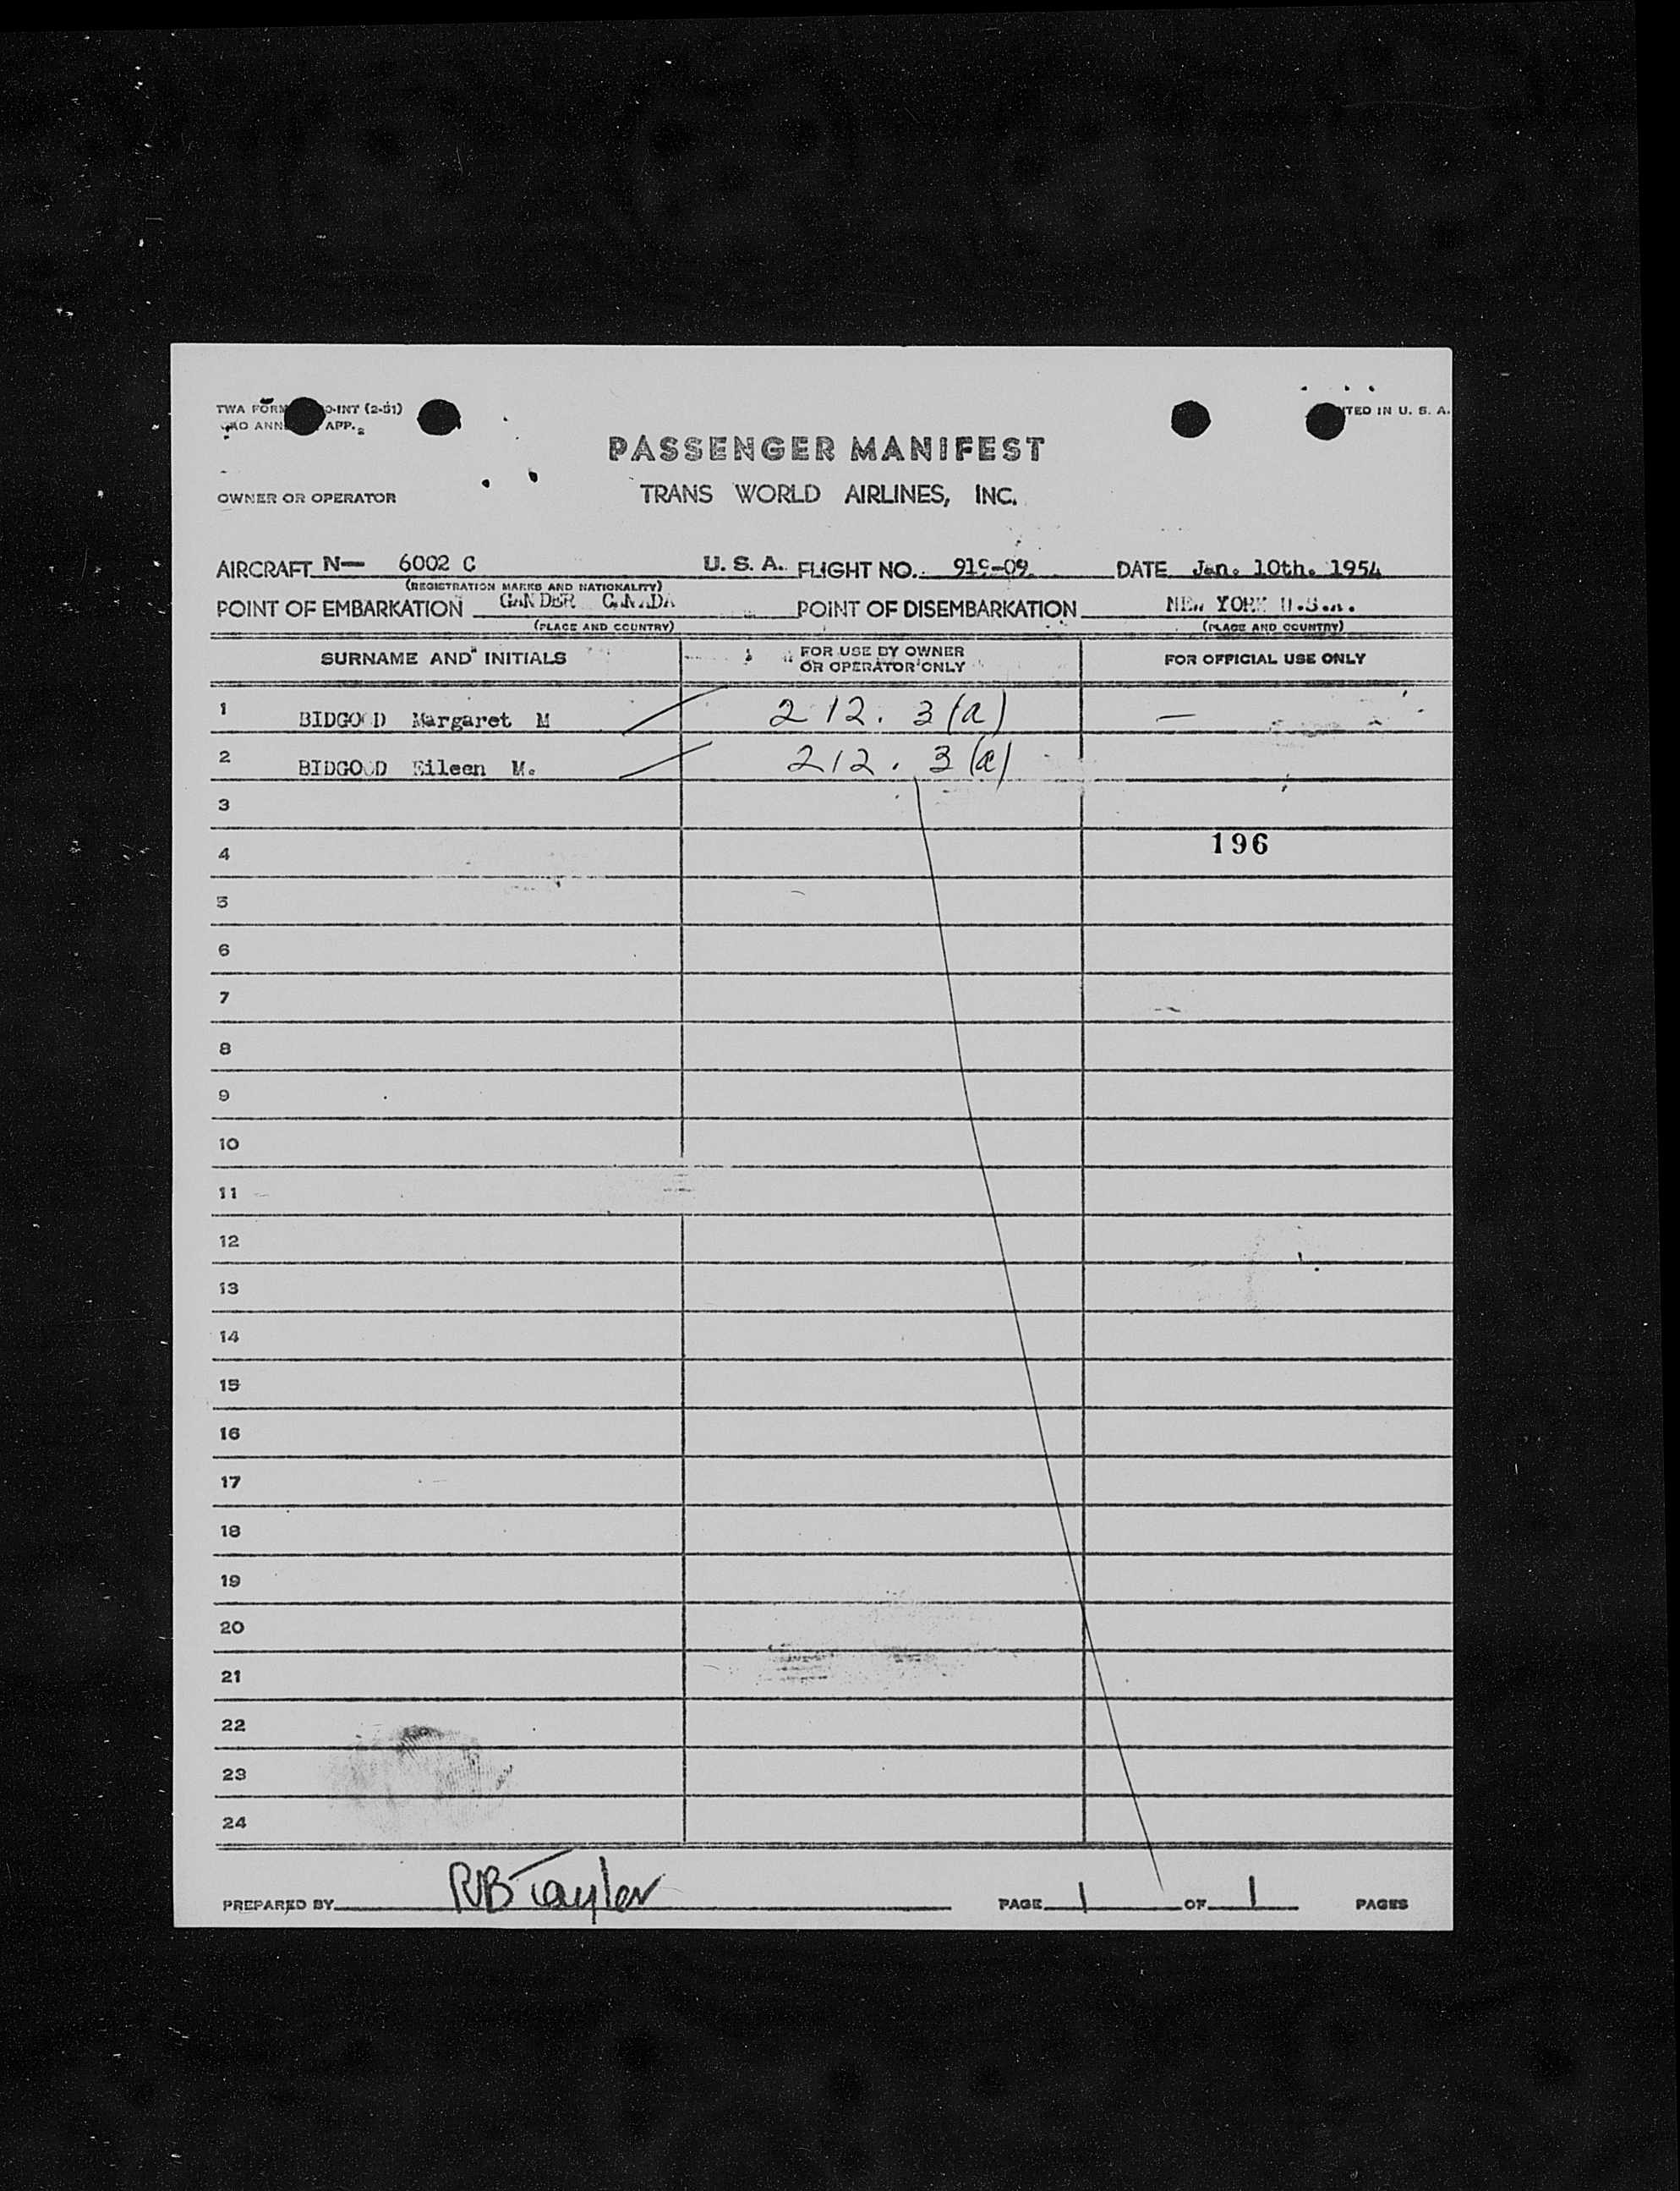 TWA FORM O-INT (2-51)
ANN APP. 2
TED IN U. S. A.
PASSENGER MANIFEST
OWNER OR OPERATOR TRANS WORLD AIRLINES, INC.
AIRCRAFT N— 6002 C U. S. A. FLIGHT NO. 919-09 DATE Jan. 10th. 1954
(REGISTRATION MARKS AND NATIONALITY)
POINT OF EMBARKATION GANDER CANADA POINT OF DISEMBARKATION NEW YORK U.S.A.
(PLACE AND COUNTRY) (PLACE AND COUNTRY)
SURNAME AND INITIALS FOR USE BY OWNER OR OPERATOR ONLY FOR OFFICIAL USE ONLY
1 BIDGOOD Margaret M 212. 3(a) —
2 BIDGOOD Eileen M. 212. 3(a)
3
4 196
5
6
7
8
9
10
11
12
13
14
15
16
17
18
19
20
21
22
23
24
PREPARED BY RB Taylor PAGE 1 OF 1 PAGES